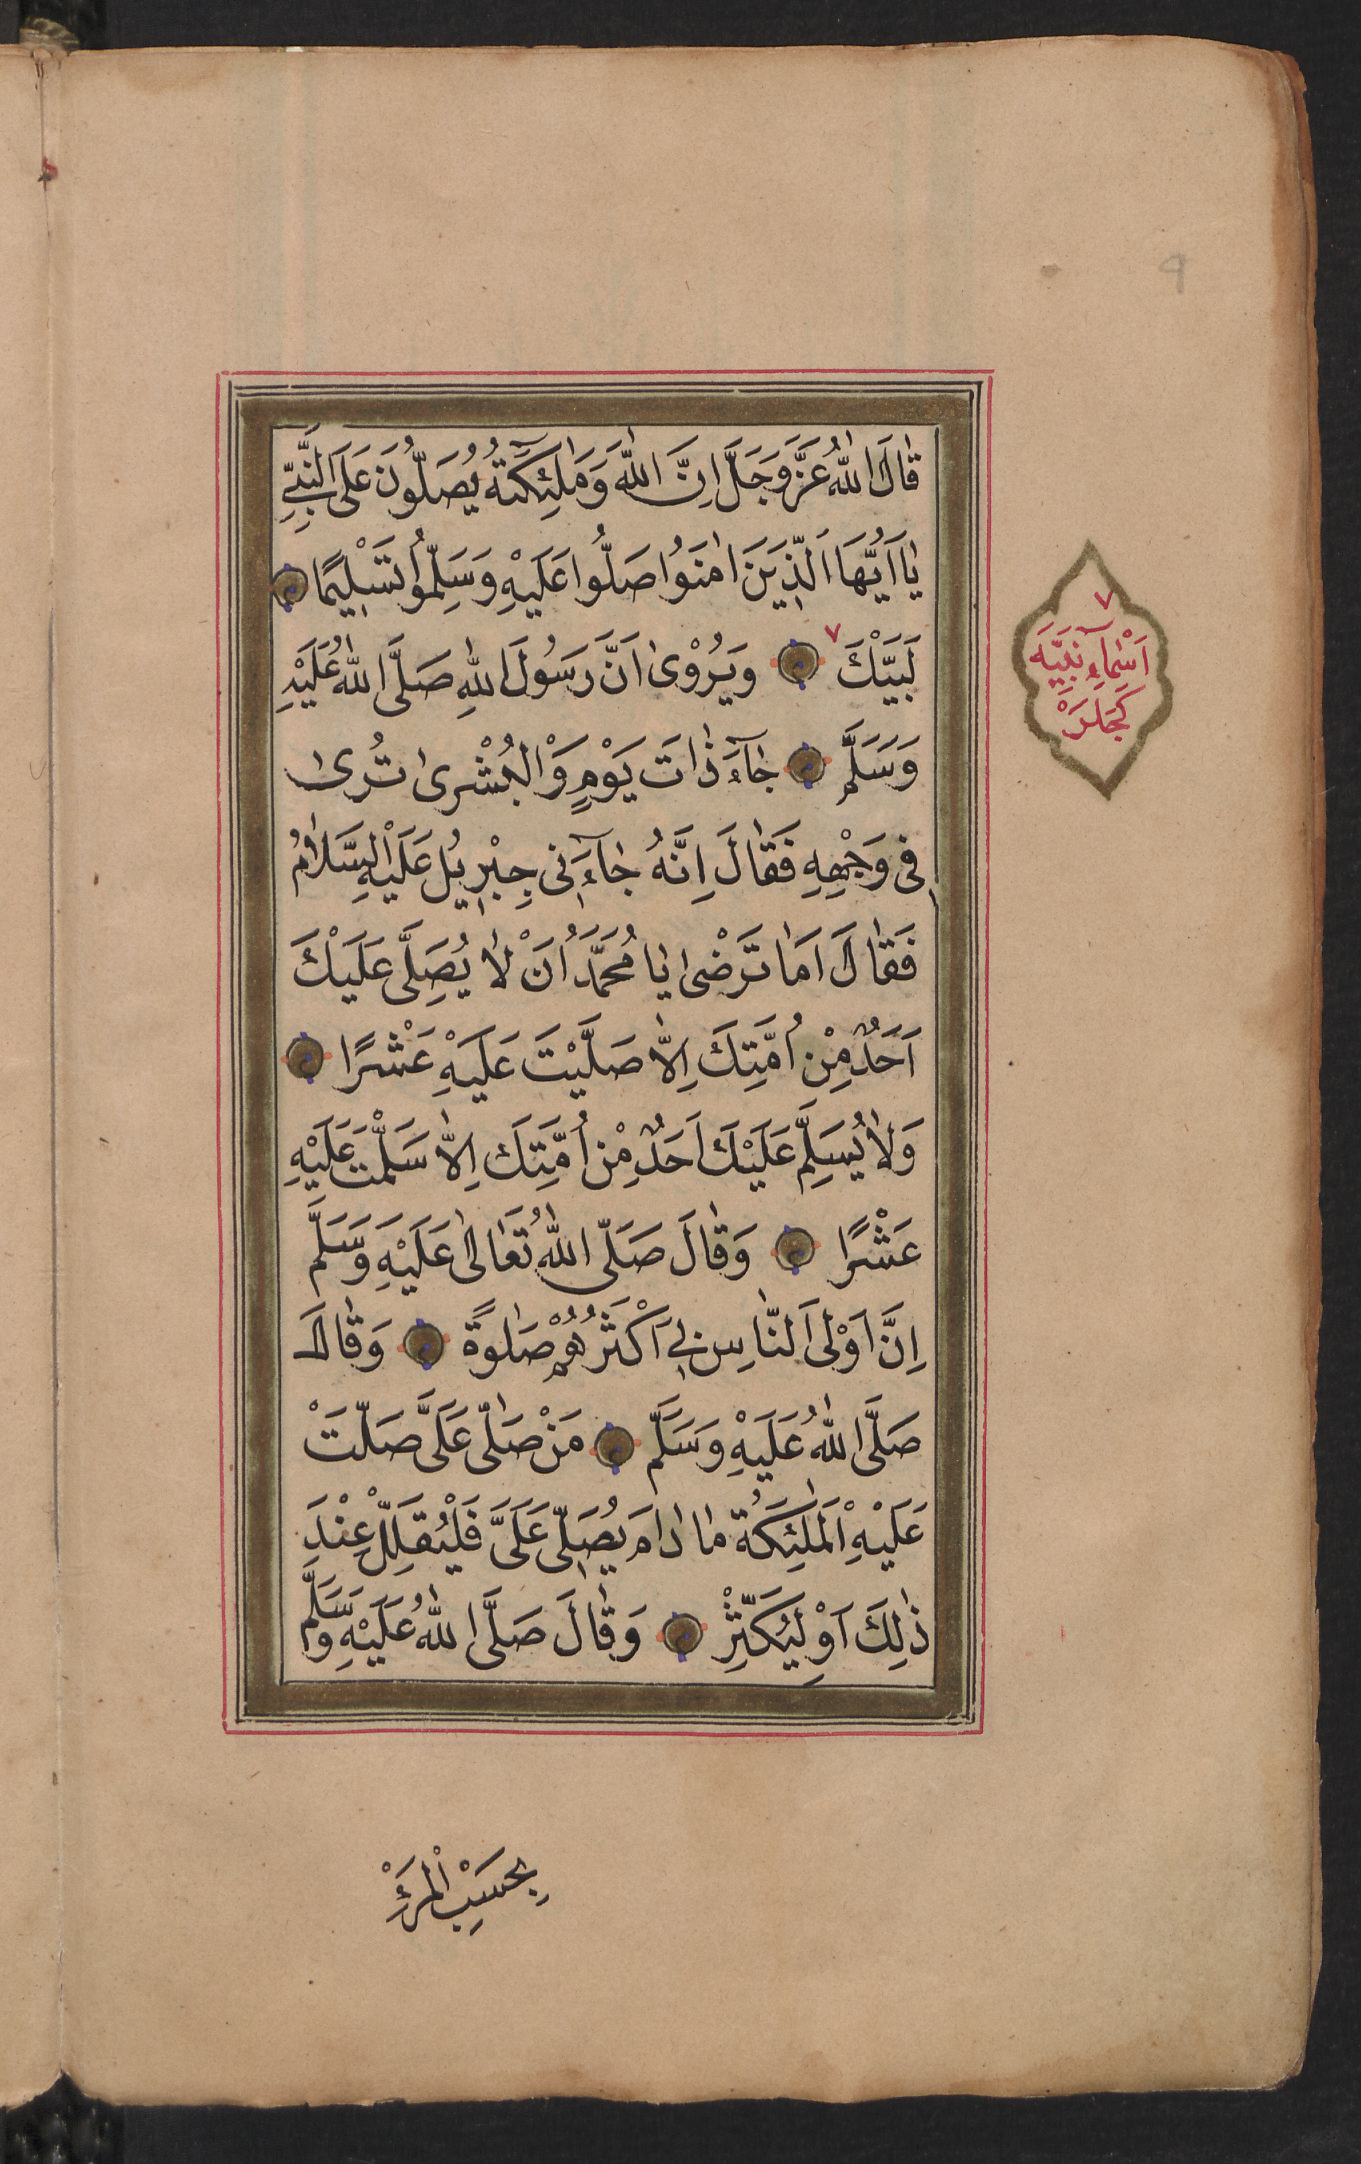 قَالَ اللّٰهُ عَزَّ وَجَلَّ اِنَّ اللّٰهَ وَمَلٰٓئِكَتَهُ يُصَلُّونَ عَلَى النَّبِيِّ
يَا اَيُّهَا الَّذِينَ اٰمَنُوا صَلُّوا عَلَيْهِ وَسَلِّمُوا تَسْلِيمًا
لَبَّيْكَ ٧ وَيُرْوٰى اَنَّ رَسُولَ اللّٰهِ صَلَّى اللّٰهُ عَلَيْهِ
وَسَلَّمَ جَآءَ ذَاتَ يَوْمٍ وَالْبُشْرٰى تُرٰى
فِى وَجْهِهِ فَقَالَ اِنَّهُ جَآءَنِى جِبْرِيلُ عَلَيْهِ السَّلَامُ
فَقَالَ اَمَا تَرْضٰى يَا مُحَمَّدُ اَنْ لَا يُصَلِّىَ عَلَيْكَ
اَحَدٌ مِنْ اُمَّتِكَ اِلَّا صَلَّيْتُ عَلَيْهِ عَشْرًا
وَلَا يُسَلِّمَ عَلَيْكَ اَحَدٌ مِنْ اُمَّتِكَ اِلَّا سَلَّمْتُ عَلَيْهِ
عَشْرًا وَقَالَ صَلَّى اللّٰهُ تَعَالٰى عَلَيْهِ وَسَلَّمَ
اِنَّ اَوْلَى النَّاسِ بِى اَكْثَرُهُمْ صَلٰوةً وَقَالَ
صَلَّى اللّٰهُ عَلَيْهِ وَسَلَّمَ مَنْ صَلّٰى عَلَىَّ صَلَّتْ
عَلَيْهِ الْمَلٰئِكَةُ مَا دَامَ يُصَلِّى عَلَىَّ فَلْيُقَلِّلْ عِنْدَ
ذٰلِكَ اَوْ لِيُكَثِّرْ وَقَالَ صَلَّى اللّٰهُ عَلَيْهِ وَسَلَّمَ
بِحَسْبِ الْمَرْءِ
٧
اَسْمَاءِ نَبِيَّه
٩